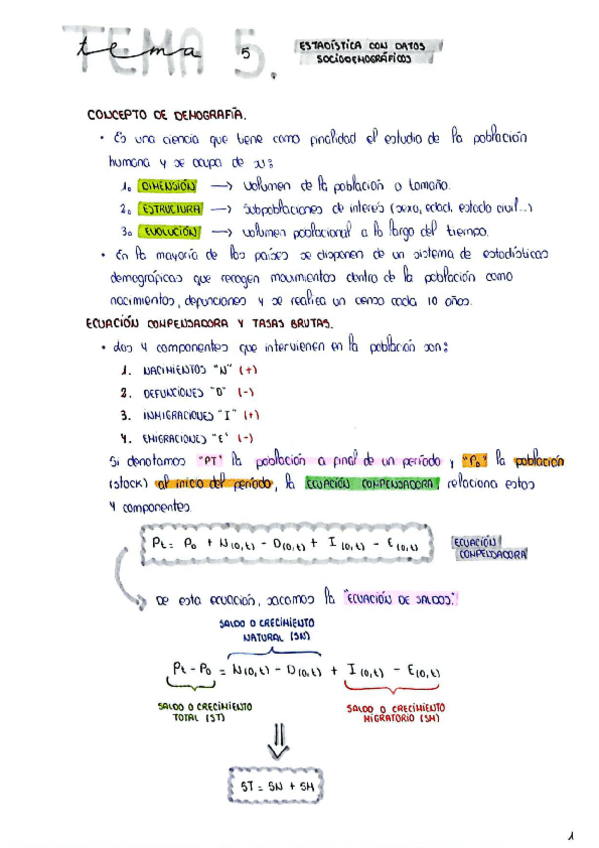 TEMA 5.
tema 5
ESTADÍSTICA CON DATOS
SOCIODEMOGRÁFICOS
CONCEPTO DE DEMOGRAFÍA.
• Es una ciencia que tiene como finalidad el estudio de la población
humana y se ocupa de su:
1. DIMENSIÓN → volumen de la población o tamaño.
2. ESTRUCTURA → subpoblaciones de interés (sexo, edad, estado civil...)
3. EVOLUCIÓN → volumen poblacional a lo largo del tiempo.
• En la mayoría de los países se disponen de un sistema de estadísticas
demográficas que recogen movimientos dentro de la población como
nacimientos, defunciones y se realiza un censo cada 10 años.
ECUACIÓN COMPENSADORA Y TASAS BRUTAS.
• Los 4 componentes que intervienen en la población son:
1. NACIMIENTOS "N" (+)
2. DEFUNCIONES "D" (-)
3. INMIGRACIONES "I" (+)
4. EMIGRACIONES "E" (-)
Si denotamos "PT" la población a final de un período y "P₀" la población
(stock) al inicio del período, la ECUACIÓN COMPENSADORA relaciona estos
4 componentes.
Pt = P₀ + N(0,t) - D(0,t) + I(0,t) - E(0,t)
ECUACIÓN
COMPENSADORA
De esta ecuación, sacamos la "ECUACIÓN DE SALDOS."
SALDO O CRECIMIENTO
NATURAL (SN)
Pt - P₀ = N(0,t) - D(0,t) + I(0,t) - E(0,t)
SALDO O CRECIMIENTO
TOTAL (ST)
SALDO O CRECIMIENTO
MIGRATORIO (SM)
ST = SN + SM
1